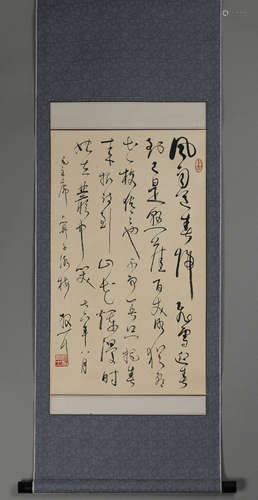 風雨送春归飛雪迎春
到已是悬崖百丈冰犹有
花枝俏俏也不争春只把春
来报待到山花烂漫时
她在丛中笑 七六年八月
毛主席 卜算子咏梅